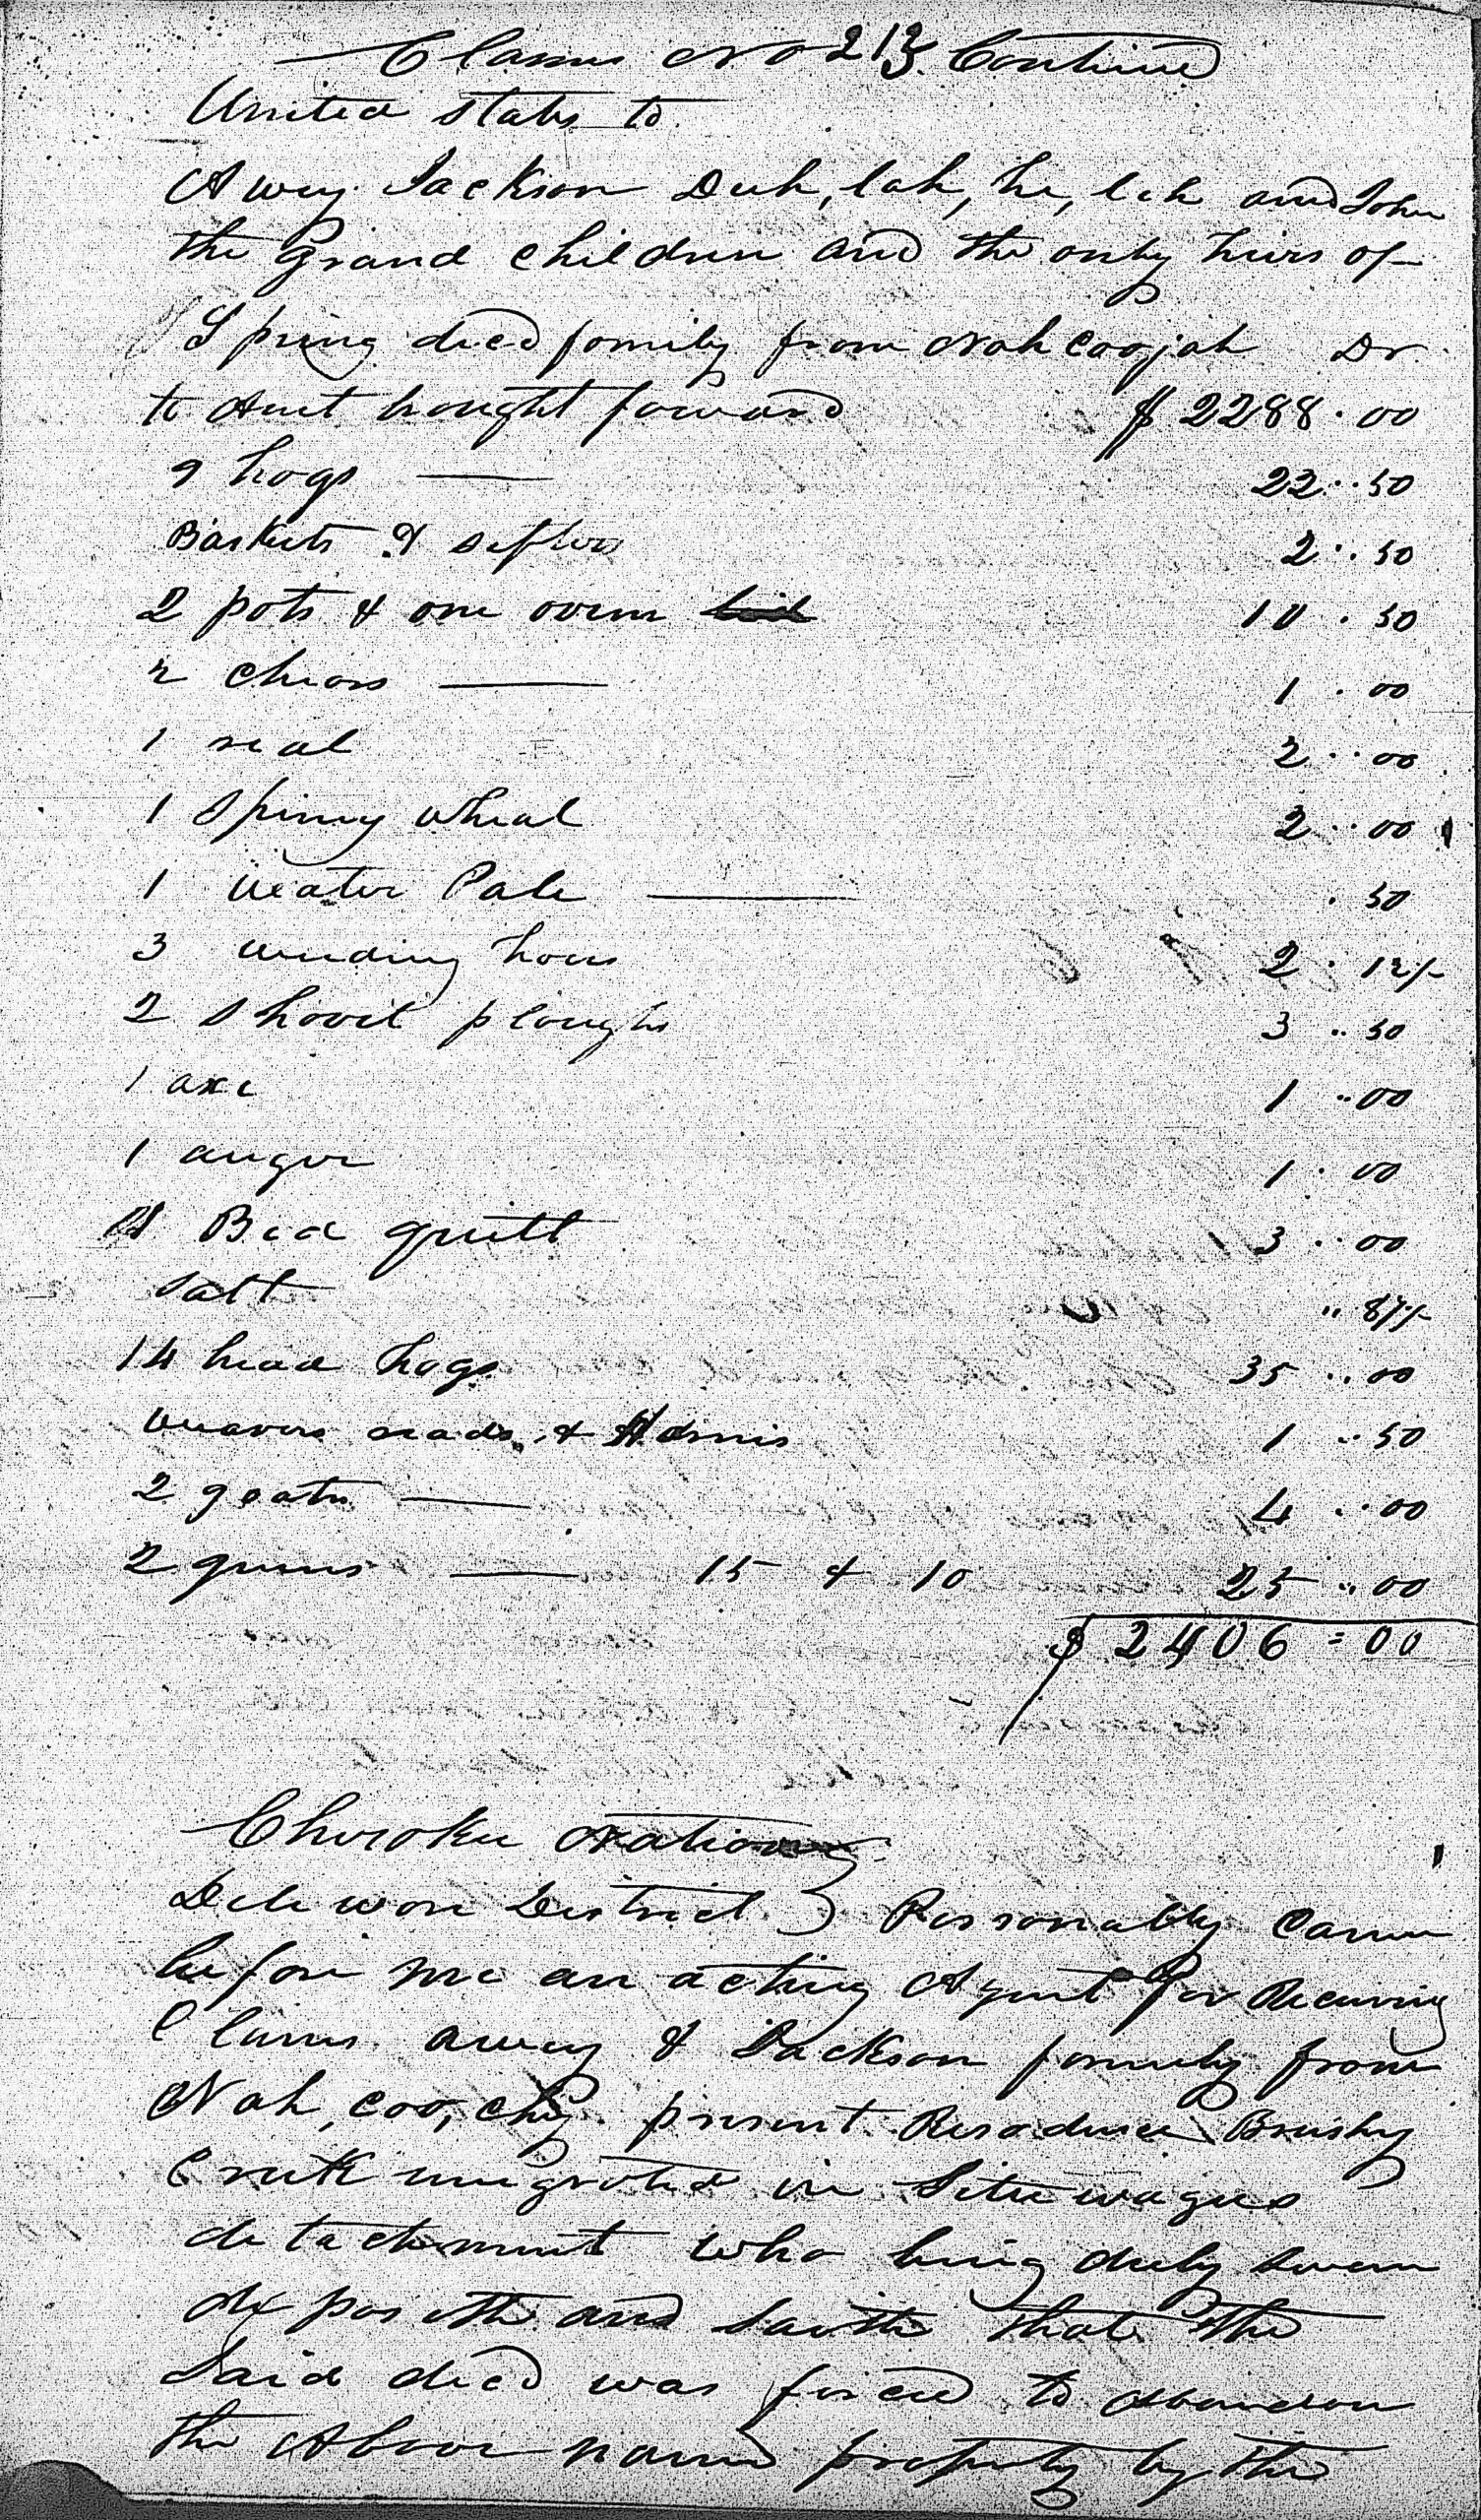 Claims No 213 Continued
United States to
Away Jackson Duh, lah, he, lah and John
the Grand children and the only heirs of
Spring decd formily from Nah Coojah Dr
to Amt brought forward $2288.00
9 hogs 22..50
Baskets & sifters 2..50
2 pots & one oven 10.50
2 Chiars 1.00
1 real 2..00
1 Spining wheal 2..00
1 Water Pale .50
3 weeding hoes 2.12½
2 shovil ploughs 3..50
1 axe 1..00
1 auger 1.00
1 Bed quilt 3..00
Salt "87½
14 head hogs 35..00
weavers reads & Harnis 1..50
2 goats 4..00
2 guns 15 & 10 25..00
$2406=00
Cherokee Nation
Delewore District } Personably Came
before me an acting Agent for Receiving
Claims Away & Jackson formily from
Nah, coo, chy present Resadence Brushy
Creek emigrated in Situwagees
detachment who being duly sworn
deposeth and saith that the
Said decd was forced to abandon
the Above named property by the